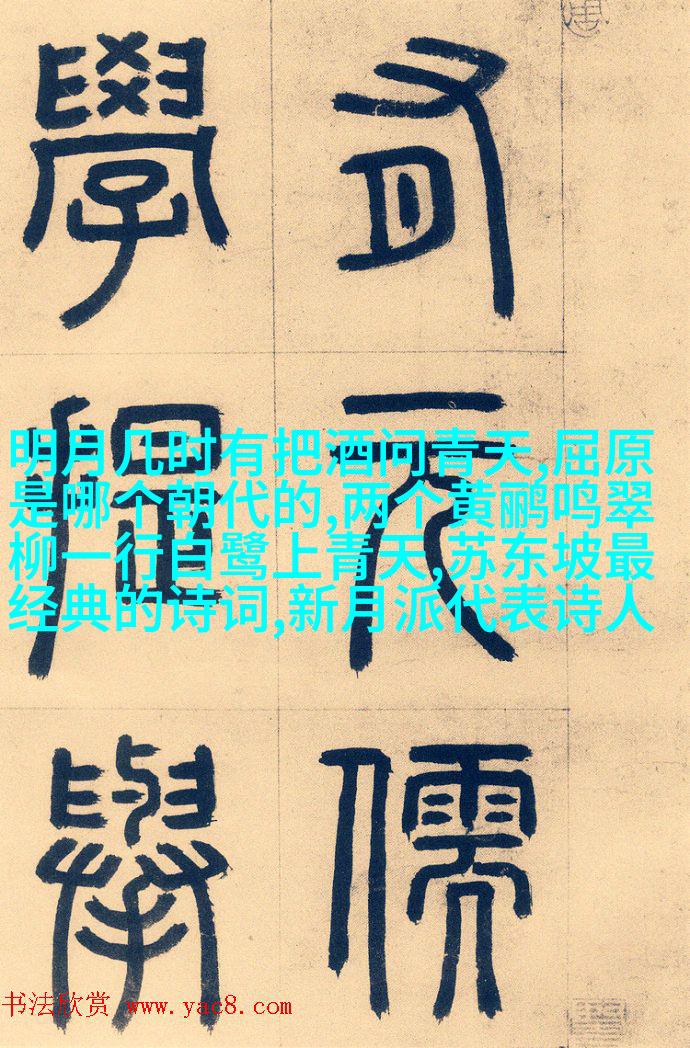 有元儒
學提舉
明月几时有把酒问青天,屈原
是哪个朝代的,两个黄鹂鸣翠
柳一行白鹭上青天,苏东坡最
经典的诗词,新月派代表诗人
书法欣赏 www.yac8.com